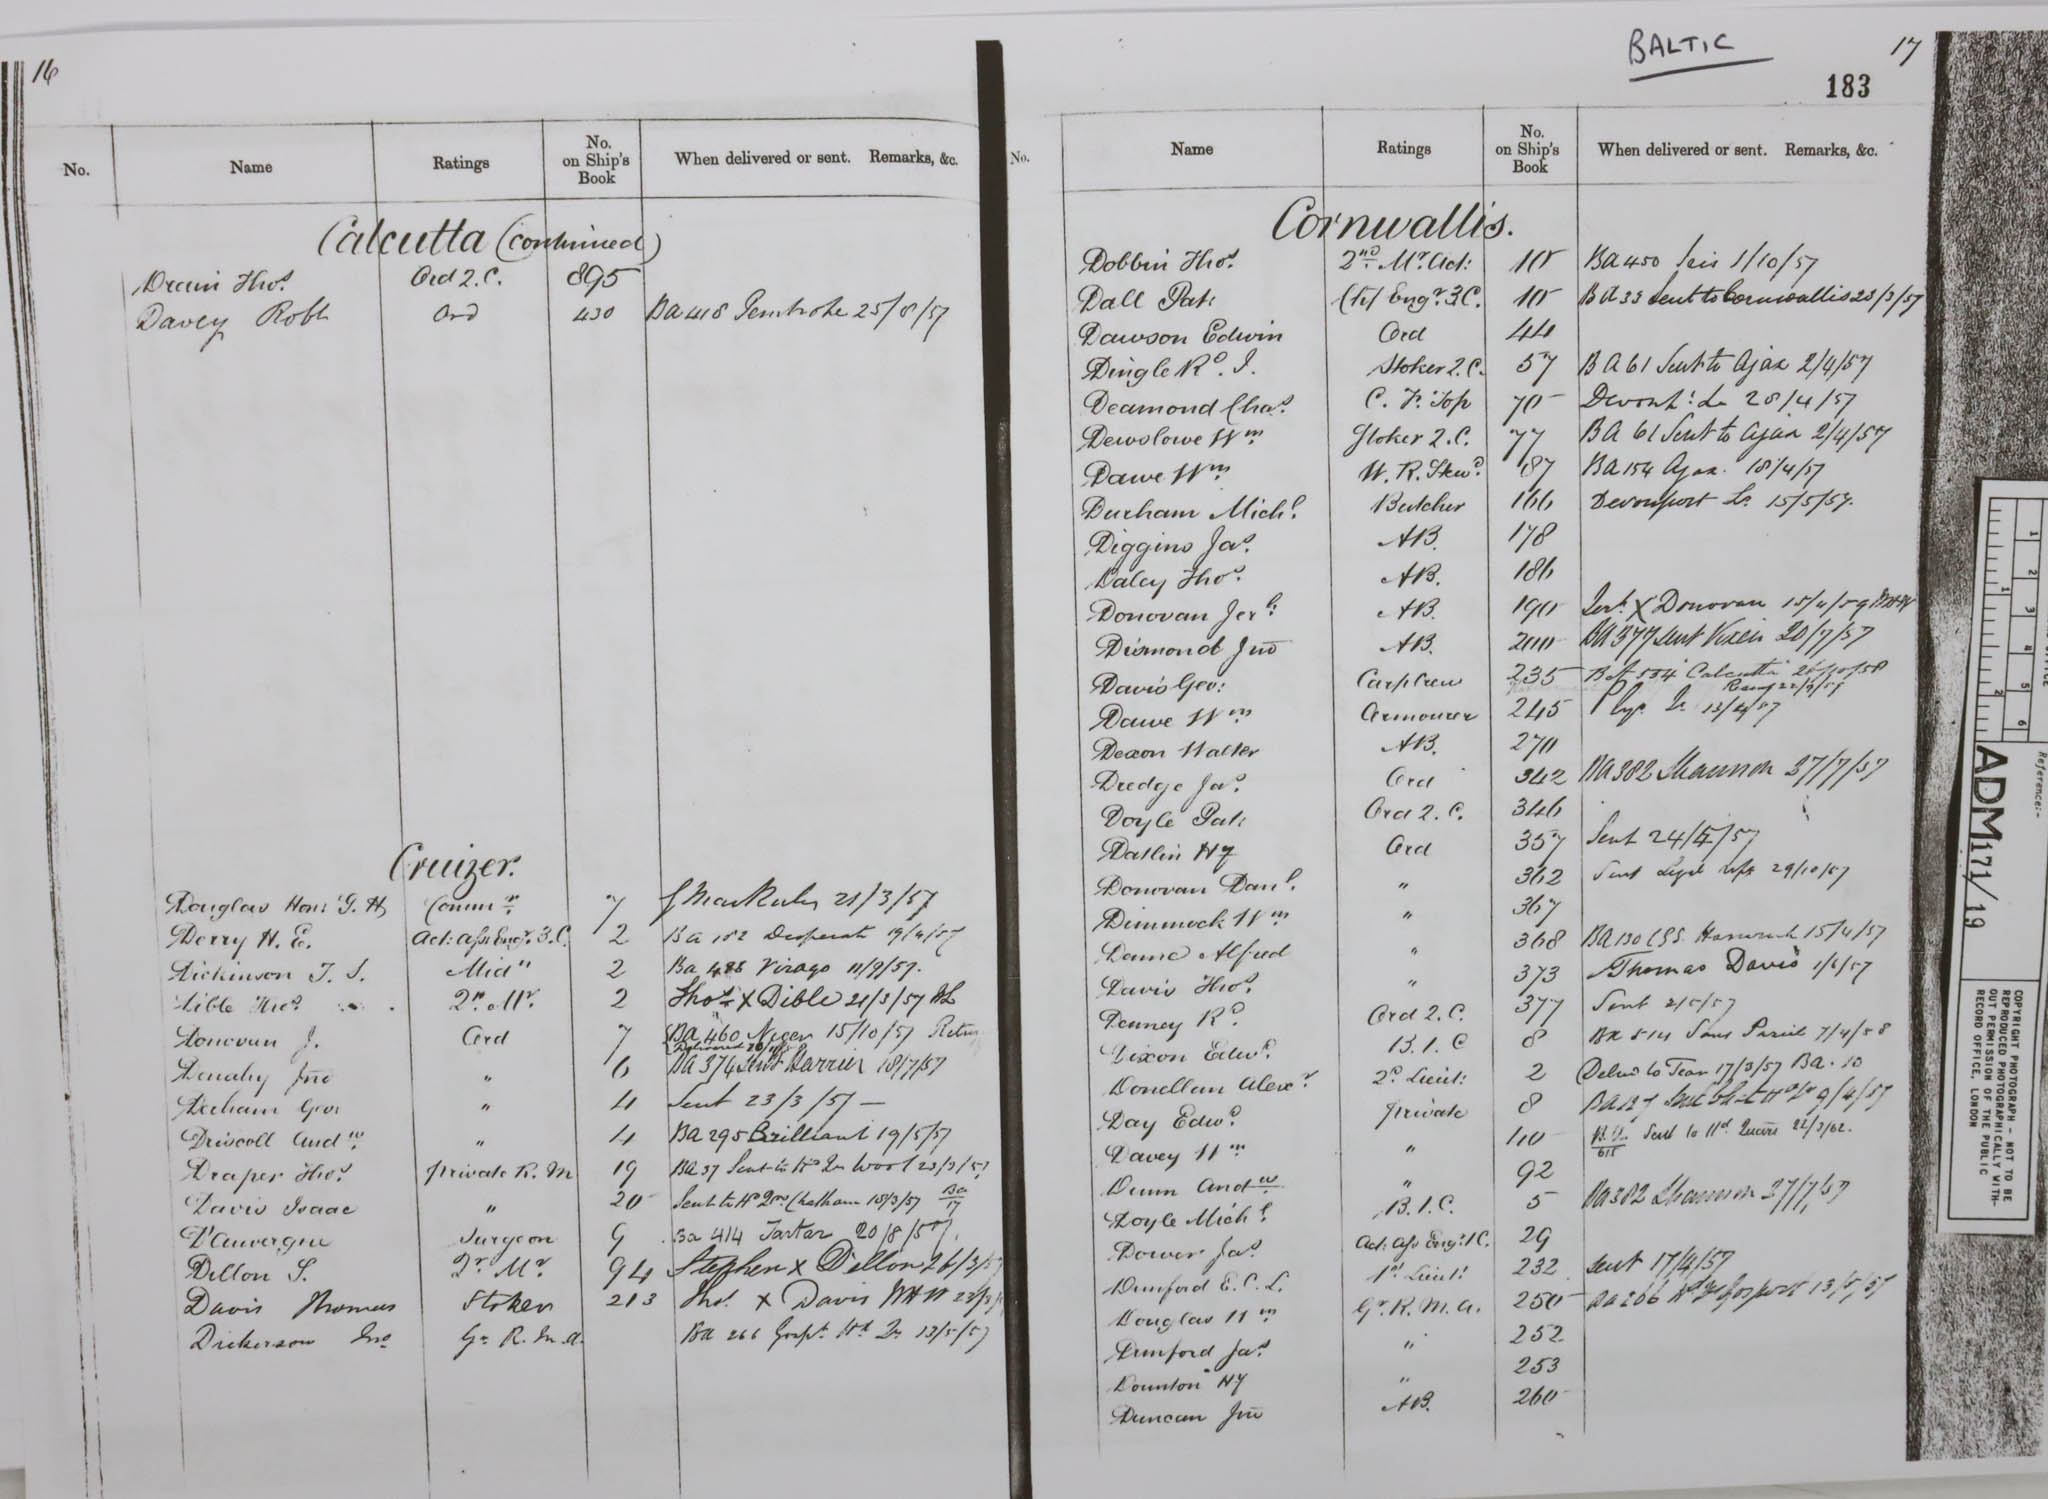 16
No. Name Ratings No. on Ship's Book When delivered or sent. Remarks, &c.
Calcutta (continued)
Thos. Ord 2.C. 895
Davey Robt Ord 430 BA 418 25/8/57
Cruizer.
Douglas Hon: G. H Comm r. 7 21/3/57
Derry H. E. Act: Ass Engr. 3.C. 2 Ba 182 Desperate 19/4/57
Dickinson T. S. Mid" 2 Ba 485 Virago 11/9/57.
Dible Thos. 2n. Mr. 2 Thos X Dible 21/3/57
Donovan J. Ord 7 BA 460 Niger 15/10/57
Denahy Jno " 6 BA 374 Sent Harrier 18/7/57
Decham Geo: " 4 Sent 23/3/57 —
Driscoll Andw " 4 BA 295 Brilliant 19/5/57
Draper Thos. private R. M 19 BA 37 Sent to Hd Qrs Wool 23/3/57
Davis Isaac " 20 Sent to Hd Qrs Chatham 18/3/57 Ba 17
D'Auvergne Surgeon 9 Ba 414 Tartar 20/8/57.
Dillon S. Qr. Mr. 94 Stephen X Dillon 26/3/57
Davis Thomas Stoker 213 Thos. X Davis
Dickerson Jno Gr. R. M. A. BA 266 Gospt. Hd Qr 13/5/57
BALTIC
17
183
No. Name Ratings No. on Ship's Book When delivered or sent. Remarks, &c.
Cornwallis.
Dobbin Thos. 2nd Mr. Ad: 10 BA 450 Iris 1/10/57
Dall Patk Engr. 3.C. 10 BA 33 sent to Cornwallis 23/3/57
Dawson Edwin Ord 44
Dingle Rd. J. Stoker 2.C. 57 BA 61 Sent to Ajax 2/4/57
Deamond Chas. C. F. Top 70 Devonpt: Le 28/4/57
Dewslowe Wm Stoker 2.C. 77 BA 61 Sent to Ajax 2/4/57
Dawe Wm W. R. Stewd. 87 BA 154 Ajax. 18/4/57
Durham Michl. Butcher 166 Devonport Le. 15/5/57.
Diggins Jas. AB. 178
Daley Thos. AB. 186
Donovan Jerh: AB. 190 Jerh X Donovan
Dismond Jno AB. 200 BA 377 sent Vixen 20/7/57
Davis Geo: Carp Crew 235 BA 554 Calcutta
Dawe Wm Armourer 245 Ply. Le
Dexon Walter AB. 270
Dredge Jas. Ord 342 BA 382 Shannon 27/7/57
Doyle Patk Ord 2.C. 346
Datlin Hy Ord 357 Sent 24/5/57
Donovan Danl. " 362 Sent 29/10/57
Dimmock Wm " 367
Dame Alfred " 368 BA 130 15/4/57
Davis Thos. " 373 Thomas Davis 1/6/57
Denney Rd. Ord 2.C. 377 Sent 2/5/57
Dixon Edwd. B. 1. C 8 Ba 514 Sans Pareil 7/4/58
Donellan Alexr. 2d. Lieut: 2 Deld to Team 17/3/57 BA. 10
Day Edwd. private 8 BA 127 Sent 9/4/57
Davey Wm " 40 Sent to Hd. Quars 22/3/62.
Dunn Andw " 92
Doyle Michl. B. 1. C. 5 BA 382 Shannon 27/7/57
Dower Jas. Act: Ass Engr. 1C. 29
Dunford E. C. L. 1st Lieut: 232 sent 17/4/57
Douglas Wm Gr. R. M. A. 250 BA 266 Hd Qr Gosport 13/5/57
Dunford Jas. " 252
Dounton Hy " 253
Duncan Jno AB. 260
Reference:-
ADM 171/19
1 2 3 4 5 6
1 2
COPYRIGHT PHOTOGRAPH - NOT TO BE
REPRODUCED PHOTOGRAPHICALLY WITH-
OUT PERMISSION OF THE PUBLIC
RECORD OFFICE, LONDON